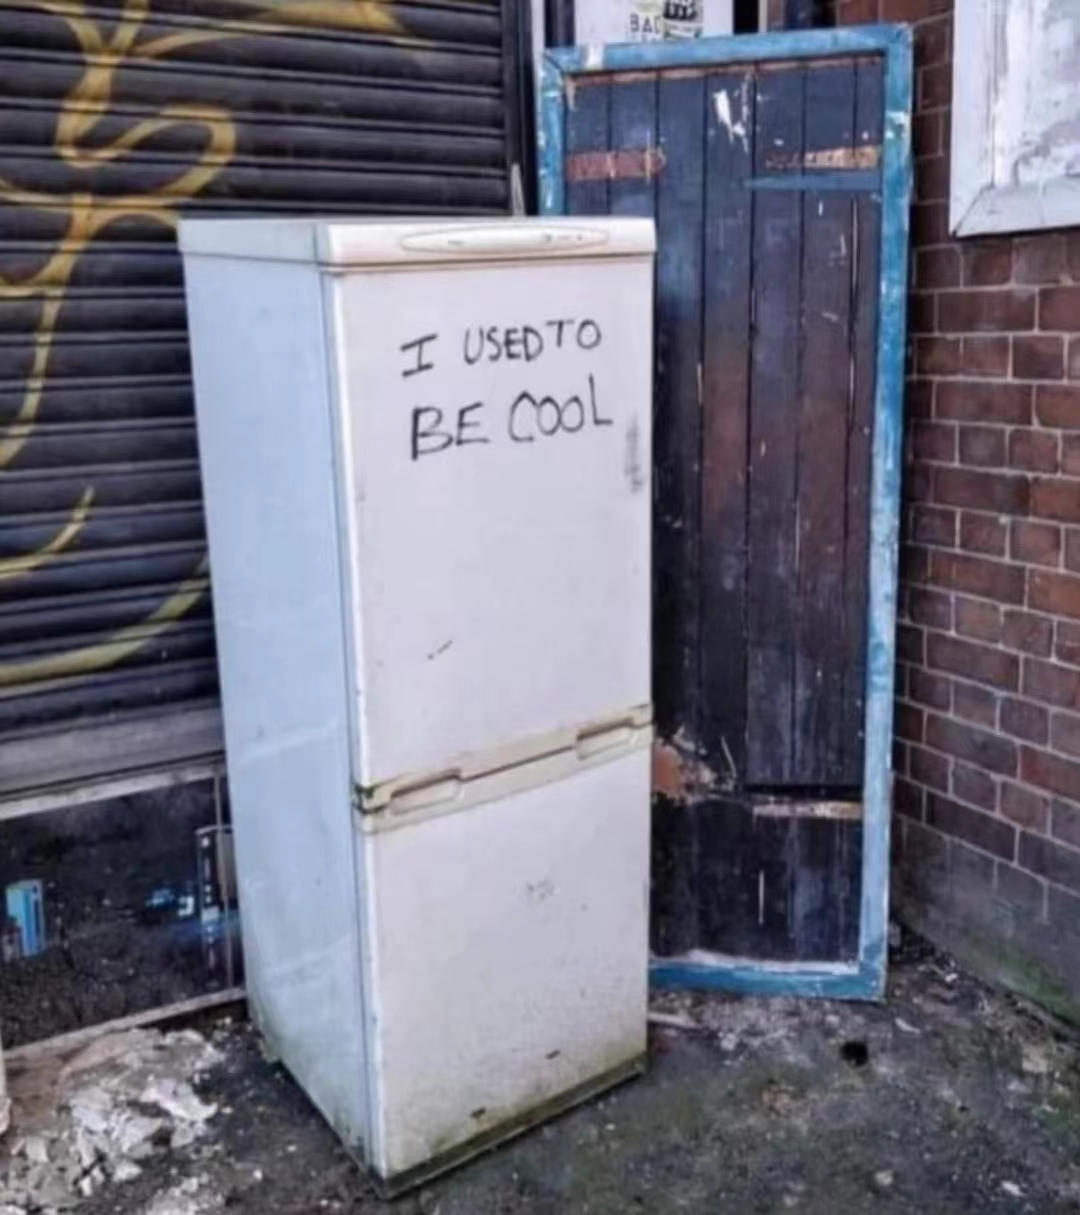 BAD
I USED TO
BE COOL